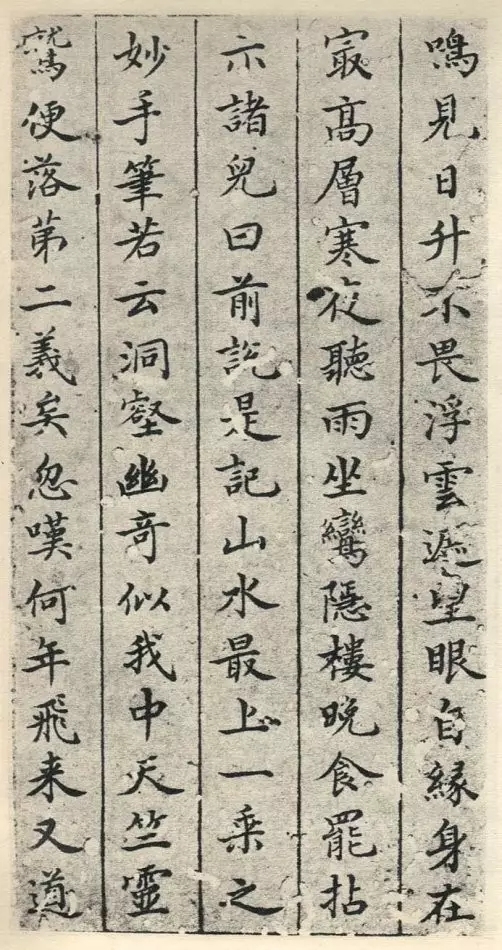 鳴見日升不畏浮雲遮望眼自緣身在
冣高層寒夜聽雨坐鸞隱樓晚食罷拈
示諸兒曰前說是記山水最上一乘之
妙手筆若云洞壑幽奇似我中天竺靈
鷲便落第二義矣忽嘆何年飛来又道